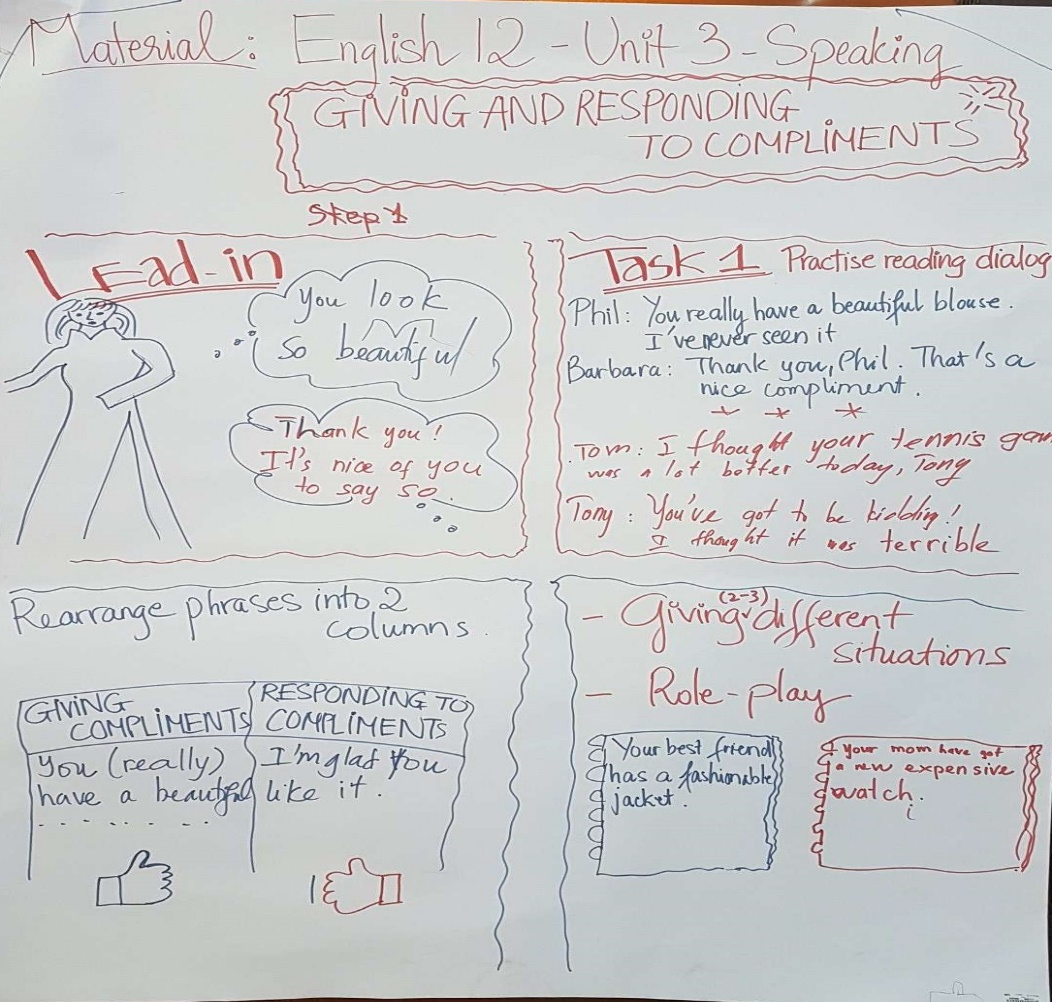 Material: English 12 - Unit 3 - Speaking
GIVING AND RESPONDING
TO COMPLIMENTS
Step 1
LEad-in
You look
so beautiful
Thank you!
It's nice of you
to say so.
Task 1 Practise reading dialog
Phil: You really have a beautiful blouse.
I've never seen it
Barbara: Thank you, Phil. That's a
nice compliment.
Tom: I thought your tennis gam
was a lot better today, Tony
Tony: You've got to be kidding!
I thought it was terrible
Rearrange phrases into 2
columns.
GIVING
COMPLIMENTS
You (really)
have a beautiful
. . . . . . . .
RESPONDING TO
COMPLIMENTS
I'm glad you
like it.
- Giving (2-3) different
situations
- Role-play
Your best friend
has a fashionable
jacket.
Your mom have got
a new expensive
watch.